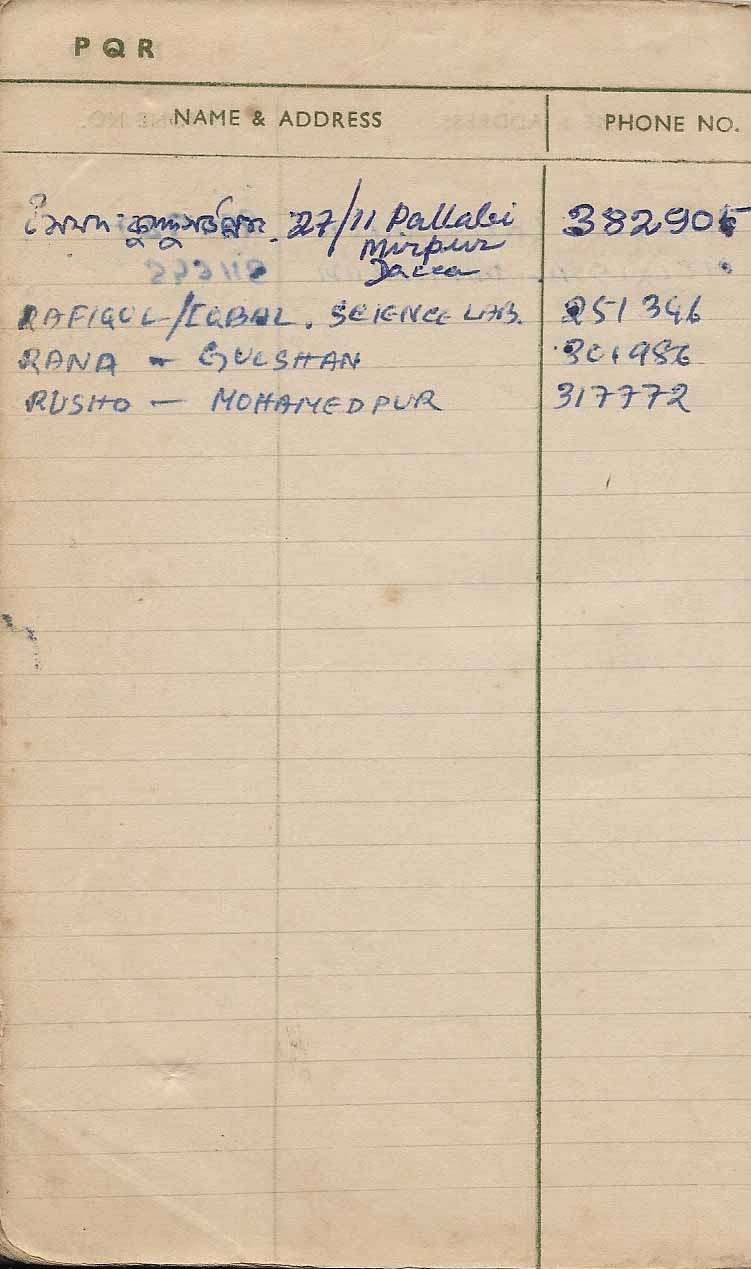 P Q R
NAME & ADDRESS PHONE NO.
27/11 Pallabi 382905
Mirpur
Dacca
RAFIQUL/IQBAL. SCIENCE LAB. 251346
RANA - GULSHAN 301986
RUSHO - MOHAMEDPUR 317772